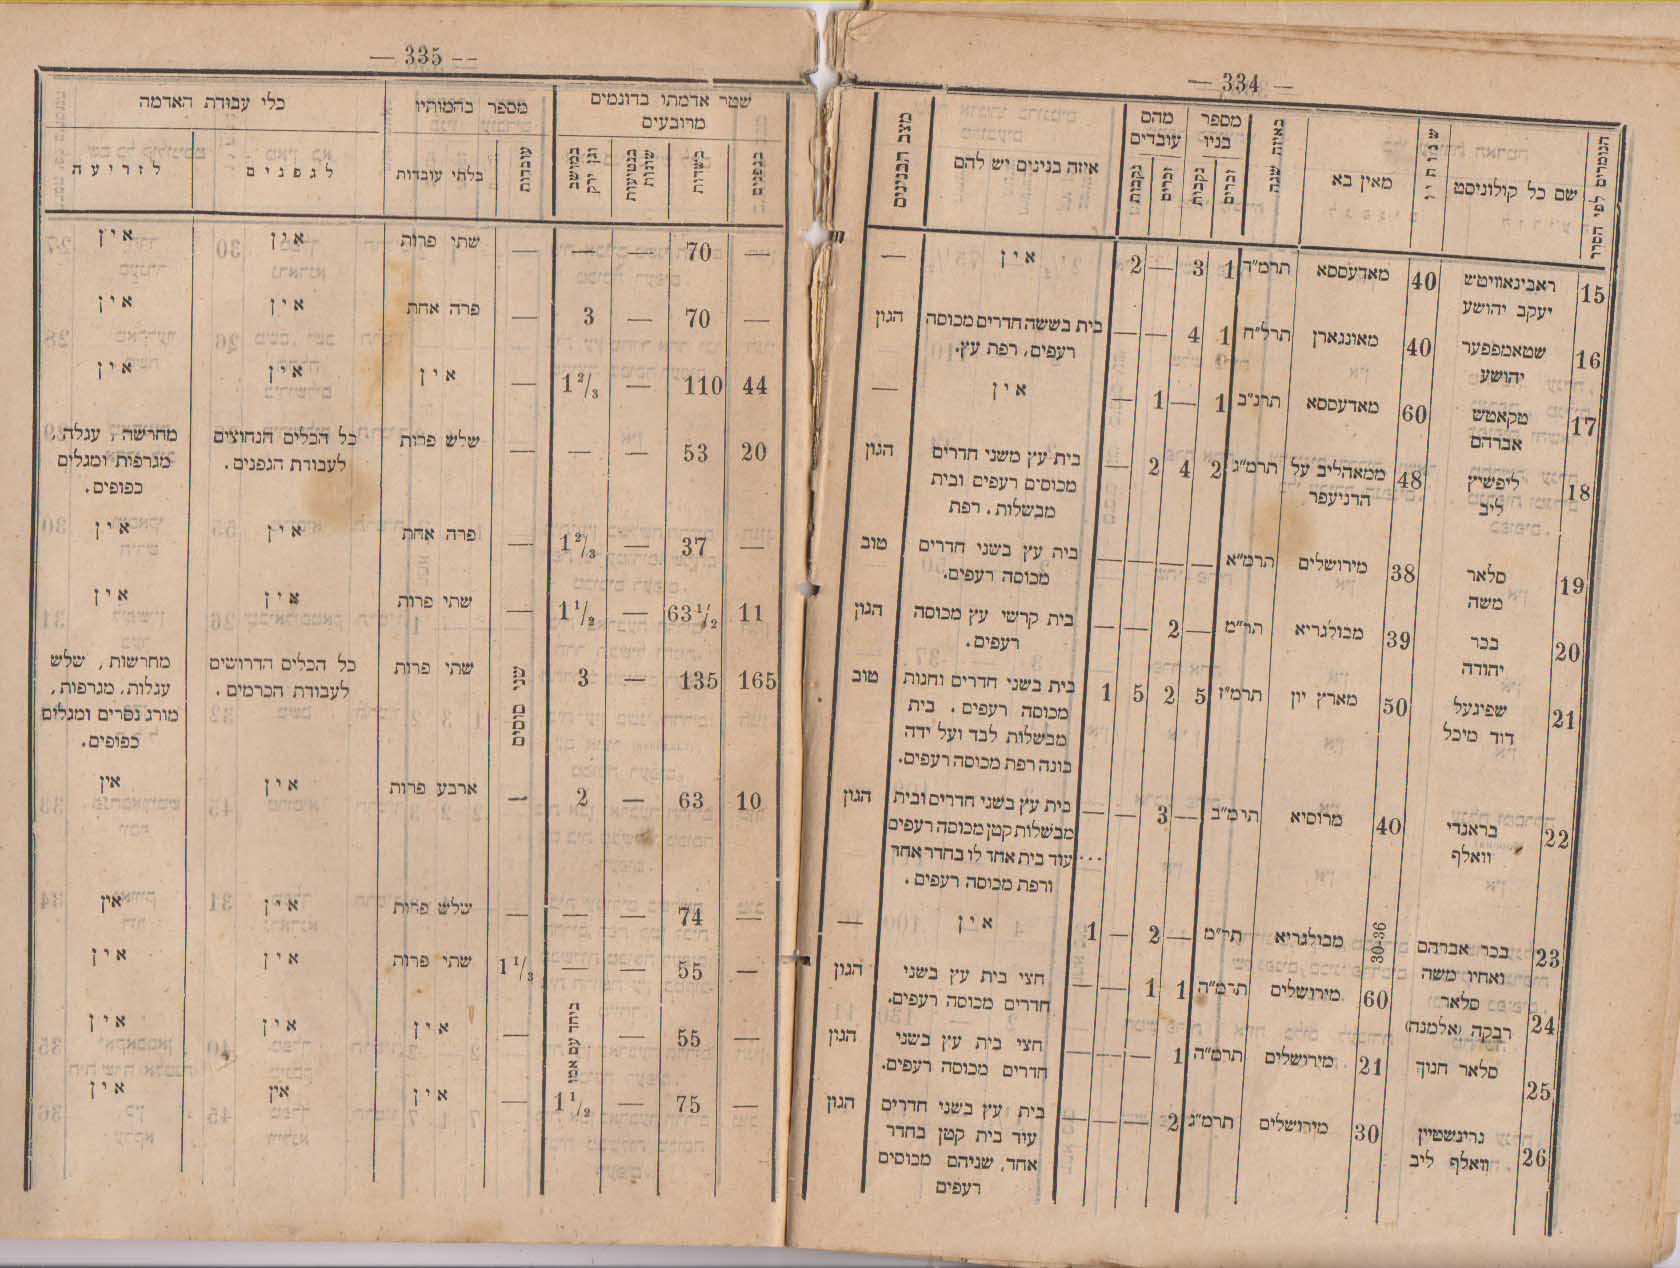 — 334 —
הנומרים לפי הסדר | שם כל קולוניסט | שנותיו | מאין בא | באיזה שנה | מספר בניו: זכרים | נקבות | מהם עובדים: זכרים | נקבות | איזה בנינים יש להם | מצב הבנינים
15 | ראבינאוויטש | 40 | מאדעססא | תרמ״ד | 1 | 3 | — | 2 | אין | —
יעקב יהושע
16 | שטאמפפער | 40 | מאונגארן | תרל״ח | 1 | 4 | — | — | בית בששה חדרים מכוסה | הגון
יהושע | רעפים, רפת עץ.
17 | טקאטש | 60 | מאדעססא | תרנ״ב | 1 | — | 1 | — | אין | —
אברהם
18 | ליפשיץ | 48 | ממאהליב על | תרמ״ג | 2 | 4 | 2 | — | בית עץ משני חדרים | הגון
ליב | הדניעפר | מכוסים רעפים ובית
מבשלות. רפת
19 | סלאר | 38 | מירושלים | תרמ״א | — | — | — | — | בית עץ בשני חדרים | טוב
משה | מכוסה רעפים.
20 | בכר | 39 | מבולגריא | תר״מ | — | 2 | — | — | בית קרשי עץ מכוסה | הגון
יהודה | רעפים.
21 | שפיגעל | 50 | מארץ יון | תרמ״ז | 5 | 2 | 5 | 1 | בית בשני חדרים וחנות | טוב
דוד מיכל | מכוסה רעפים. בית
מבשלות לבד ועל ידה
בונה רפת מכוסה רעפים.
22 | בראנדי | 40 | מרוסיא | תימ״ב | — | 3 | — | — | בית עץ בשני חדרים ובית | הגון
וואלף | מבשלות קטן מכוסה רעפים
... עוד בית אחד לו בחדר אחד
ורפת מכוסה רעפים.
23 | בכר אברהם | 30-36 | מבולגריא | תר״מ | — | 2 | — | 1 | אין | —
ואחיו משה
24 | סלאר | 60 | מירושלים | תרמ״ה | 1 | 1 | — | — | חצי בית עץ בשני | הגון
רבקה (אלמנה) | חדרים מכוסה רעפים.
25 | סלאר חנוך | 21 | מירושלים | תרמ״ה | 1 | — | — | — | חצי בית עץ בשני | הגון
חדרים מכוסה רעפים.
26 | גרינשטיין | 30 | מירושלים | תרמ״ג | 2 | — | — | — | בית עץ בשני חדרים | הגון
וואלף ליב | עוד בית קטן בחדר
אחד, שניהם מכוסים
רעפים
— 335 —
שטר אדמתו בדונמים מרובעים: בגפנים | בשדות | בנטיעות שונות | וגן ירק במושב | מספר בהמותיו: עובדות | בלתי עובדות | כלי עבודת האדמה: לגפנים | לזריעה
— | 70 | — | — | — | שתי פרות | אין | אין
— | 70 | — | 3 | — | פרה אחת | אין | אין
44 | 110 | — | 1 2/3 | — | אין | אין | אין
20 | 53 | — | — | — | שלש פרות | כל הכלים הנחוצים | מחרשה, עגלה
לעבודת הגפנים. | מגרפות ומגלים
כפופים.
— | 37 | — | 1 2/3 | — | פרה אחת | אין | אין
11 | 63 1/2 | — | 1 1/2 | — | שתי פרות | אין | אין
165 | 135 | — | 3 | שני סוסים | שתי פרות | כל הכלים הדרושים | מחרשות, שלש
לעבודת הכרמים. | עגלות, מגרפות,
מורג נסרים ומגלים
כפופים.
10 | 63 | — | 2 | — | ארבע פרות | אין | אין
— | 74 | — | — | — | שלש פרות | אין | אין
— | 55 | — | — | 1 1/3 | שתי פרות | אין | אין
— | 55 | — | ביחד עם אמו | — | אין | אין | אין
— | 75 | — | 1 1/2 | — | אין | אין | אין